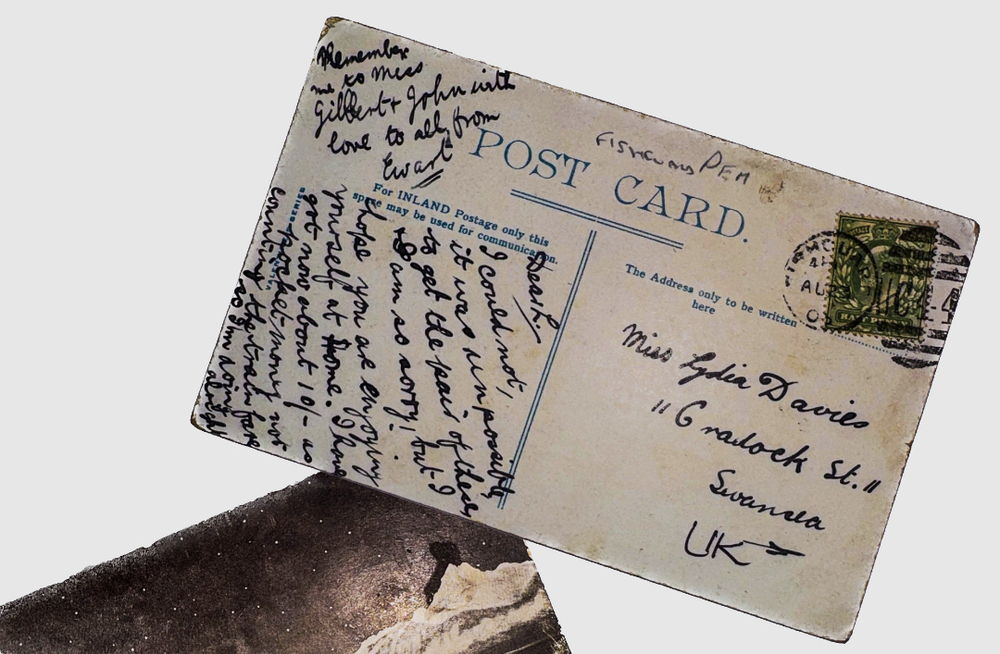 Remember
me to Miss
Gilbert + John with
love to all, from
Ewart
POST CARD.
For INLAND Postage only this
space may be used for communication.
The Address only to be written
here
HALFPENNY
Dear L.
I could not,
it was impossible,
to get the pair of theirs,
I am so sorry! but I
hope you are enjoying
yourself at home. I have
got now about 10/- as
pocket-money not
counting the train fare
as am
Miss Lydia Davies
"Cradock St."
Swansea
UK